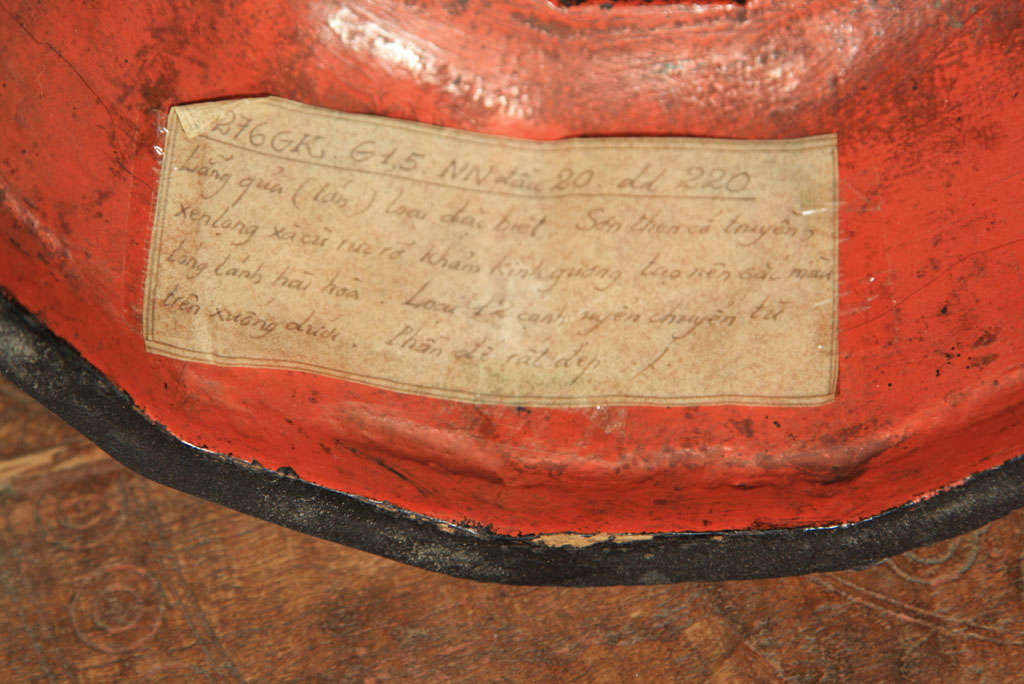 276GK. G1,5 NN đầu 20 dd 220
Lẵng quả (lớn) loại đặc biệt. Sơn then cổ truyền,
xen lẫn xà cừ rực rỡ khảm kính gương tạo nên các màu
lóng lánh hài hòa. Loại 12 cạnh, uyển chuyển từ
trên xuống dưới. Phần đế rất đẹp.